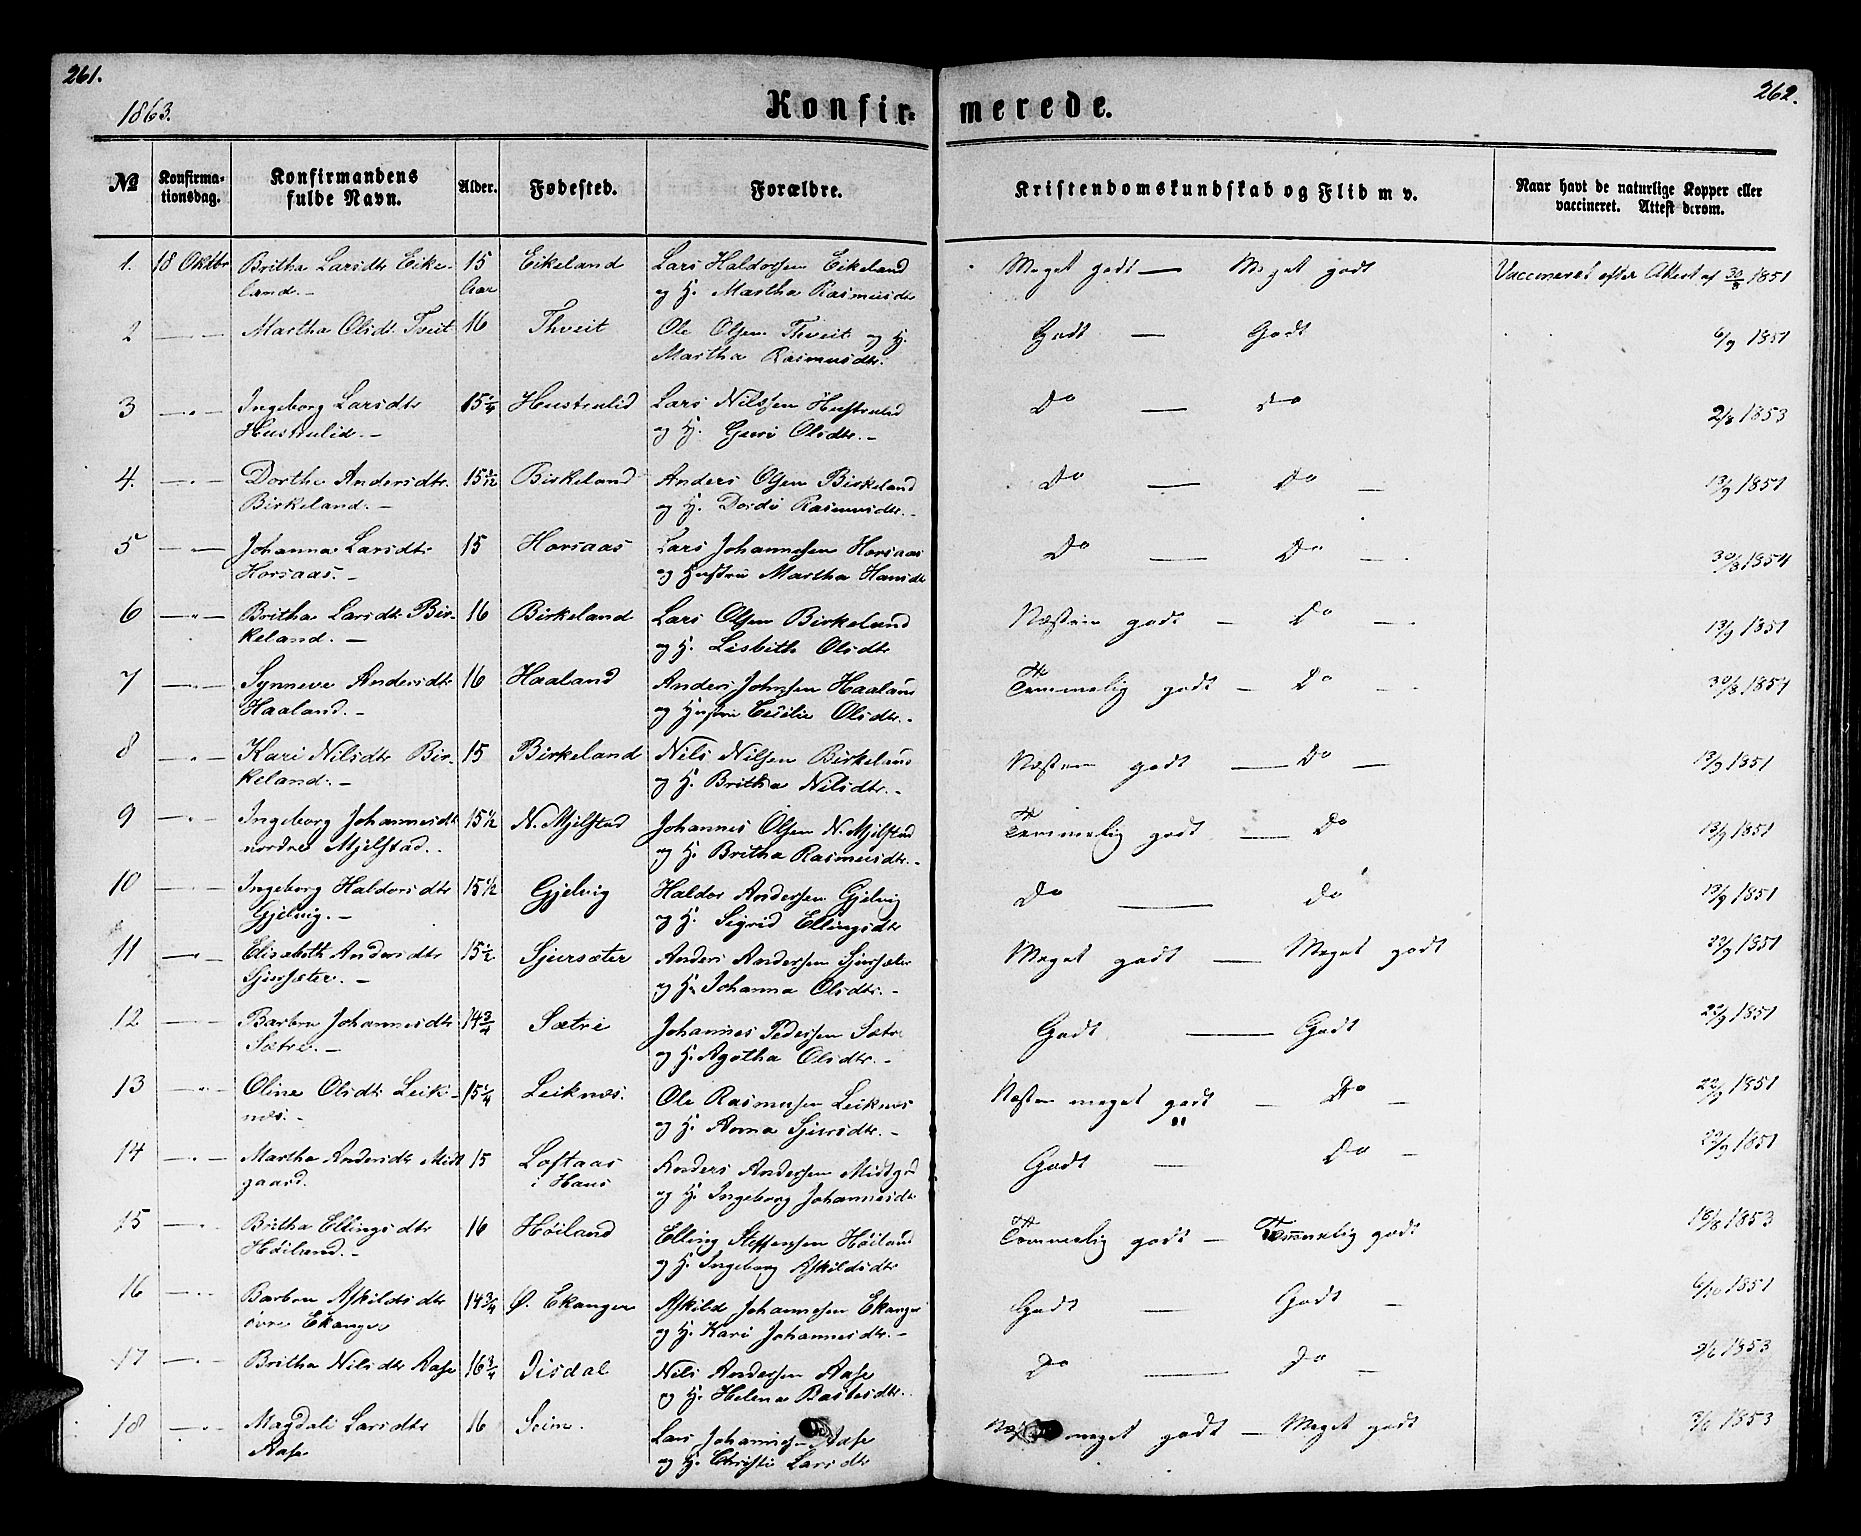 261.
262.
1863.
Konfir-
merede.
No
Konfirma-
tionsdag.
Konfirmandens
fulde Navn.
Alder.
Fødested.
Forældre.
Kristendomskundskab og Flid m v.
Naar havt de naturlige Kopper eller
vaccineret. Attest derom.
1. 18 Oktbr Britha Larsdtr Eike- 15 Eikeland Lars Haldorsen Eikeland Meget godt — Meget godt Vaccineret efter Attest af 30/8 1851
land.- Aar og H. Martha Rasmusdtr
2 —"— Martha Olsdtr Tveit 16 Thveit Ole Olsen Thveit og H. Godt — Godt 6/9 1851
Martha Rasmusdtr.
3 —"— Ingeborg Larsdtr 15 1/4 Hustrulid Lars Nilssen Hustrulid Do — Do 2/8 1853
Hustrulid.- og H. Guri Olsdtr.-
4. —"— Dorthe Andersdtr. Birkeland Anders Olsen Birkeland Do — Do — 13/9 1851
Birkeland.- og H. Dordi Rasmusdtr.-
5 —"— Johanna Larsdtr 15 Horsaas Lars Johannesen Horsaas Do — Do — 30/8 1854
Horsaas.- og Hustru Martha Hansdtr
6 —"— Britha Larsdtr Bir- 16 Birkeland Lars Olsen Birkeland Næsten godt - Do — 13/9 1851
keland.- og H. Lisbeth Olsdtr
7 —"— Synneve Andersdtr 16 Haaland Anders Johnsen Haaland Temmelig godt - Do — 30/8 1854
Haaland.- og Hustru Cecilie Olsdtr.-
8 —"— Kari Nilsdtr Bir- 15 Birkeland Nils Nilsen Birkeland Næsten godt — Do — 13/9 1851
keland.- og H. Britha Nilsdtr.-
9 —"— Ingeborg Johannesdtr 15 1/2 N. Mjelstad Johannes Olsen N. Mjelstad Temmelig godt — Do 13/9 1851
nordre Mjelstad.- og H. Britha Rasmusdtr.-
10 —"— Ingeborg Haldorsdtr 15 1/2 Gjelvig Haldor Andersen Gjelvig Do — Do 13/9 1851
Gjelvig.- og H. Sigrid Ellingsdtr
11 —"— Elisabeth Andersdtr 15 1/2 Sjursæter Anders Andersen Sjursæter Meget godt — Meget godt 22/9 1851
Sjursæter.- og H. Johanna Olsdtr.-
12 —"— Barbru Johannesdtr 14 3/4 Sætre Johannes Pedersen Sætre Godt — Godt 22/9 1851
Sætre.- og H. Agotha Olsdtr.-
13 —"— Oline Olsdtr Leik- 15 1/4 Leiknæs. Ole Rasmusen Leiknæs Næsten meget godt - Do — 22/9 1851
næs.- og H. Anna Sjursdtr.-
14 —"— Martha Andersdtr Midt 15 Loftaas Anders Andersen Midtgd Godt — Do — 22/9 1851
gaard. i Haus og H. Ingeborg Johannesdtr
15 —"— Britha Ellingsdtr 16 Høiland Elling Steffensen Høiland Temmelig godt - Temmelig godt 18/8 1853
Høiland.- og H. Ingeborg Askildsdtr
16 —"— Barbru Askildsdtr 14 3/4 Ø. Ekanger Askild Johannesen Ekanger Godt — Godt - 6/10 1851
øvre Ekanger og H. Kari Johannesdtr.-
17 —"— Britha Nilsdtr Aase 16 3/4 Isdal Nils Andersen Aase Do — Do — 2/6 1853
og H. Helena Bastesdtr.
18 —"— Magdali Larsdtr 16 Seim. Lars Johannesen Aase meget godt — Meget godt 3/6 1853
Aase og H. Christi Larsdtr